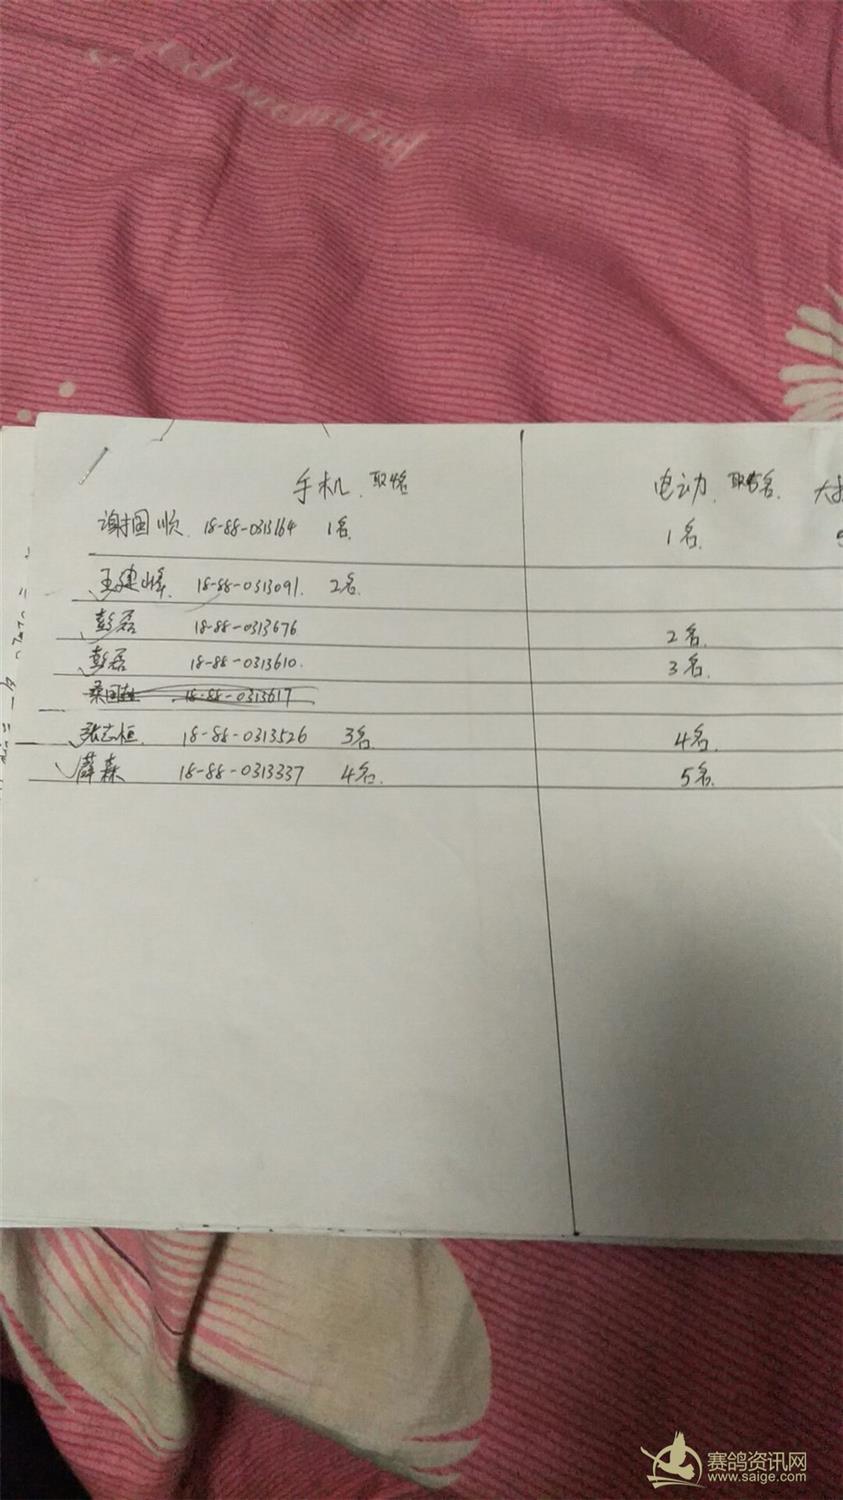 Good morning
手机 取4名 电动 取5名 大
谢国顺 18-88-0313164 1名 1名
王建峰 18-88-0313091 2名
彭磊 18-88-0313676 2名
彭磊 18-88-0313610 3名
桑国 18-88-0313617
张志恒 18-88-0313526 3名 4名
薛森 18-88-0313337 4名 5名
赛鸽资讯网
www.saige.com